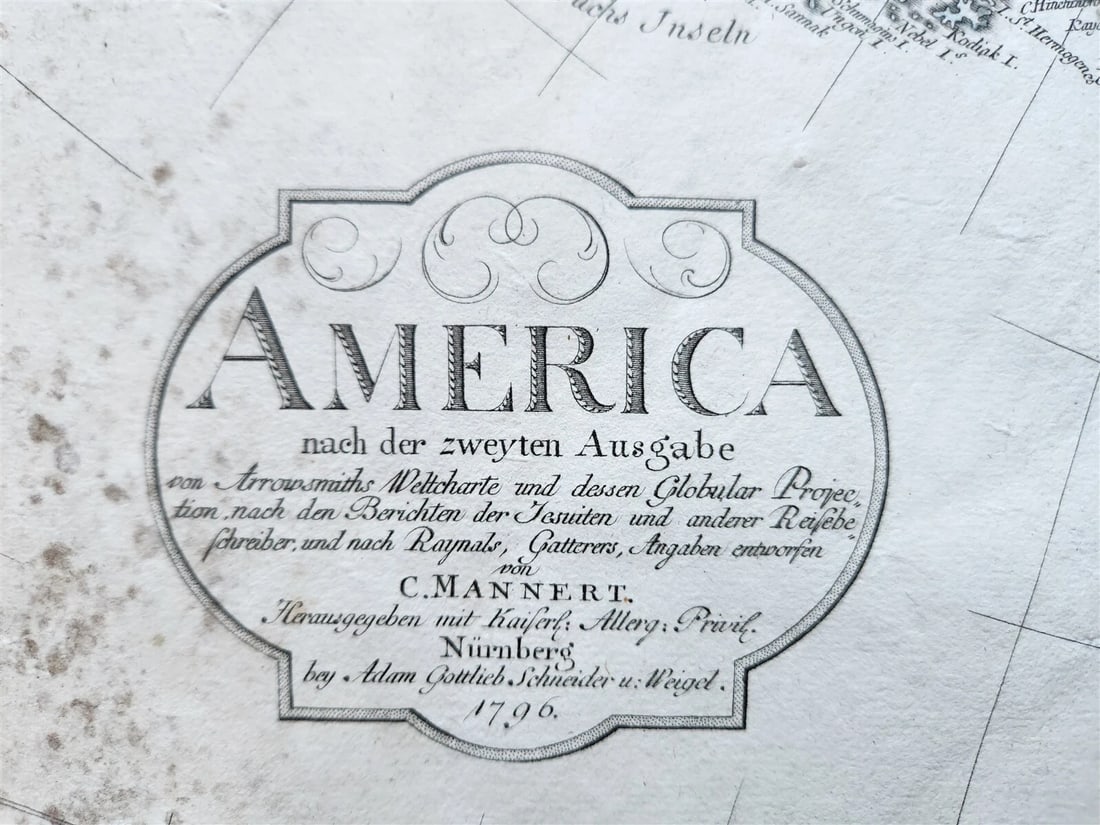 Inseln
I. Sumak
Schumagin I.
Ingen I.
Nebel I.s
Kodiak I.
I. St. Hermogenes
AMERICA
nach der zweyten Ausgabe
von Arrowsmiths Weltcharte und dessen Globular Projec„
tion, nach den Berichten der Jesuiten und anderer Reiſebe„
ſchreiber, und nach Raynals, Gatterers, Angaben entworfen
von
C. MANNERT.
Herausgegeben mit Kaiſerl: Allerg: Privil.
Nürnberg
bey Adam Gottlieb Schneider u: Weigel.
1796.